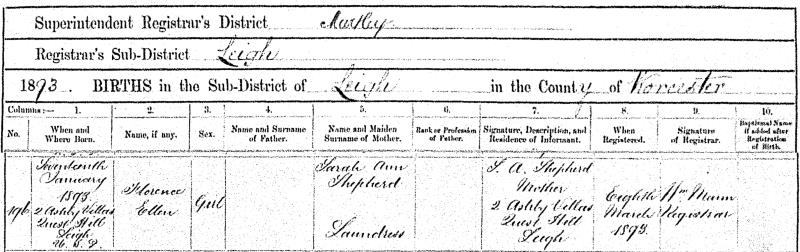 Superintendent Registrar's District Martley
Registrar's Sub-District Leigh
1893. BIRTHS in the Sub-District of Leigh in the County of Worcester
Columns:— 1. 2. 3. 4. 5. 6. 7. 8. 9. 10.
No. When and Where Born. Name, if any. Sex. Name and Surname of Father. Name and Maiden Surname of Mother. Rank or Profession of Father. Signature, Description, and Residence of Informant. When Registered. Signature of Registrar. Baptismal Name if added after Registration of Birth.
196
Seventeenth
January
1893
2 Ashby Villas
Quest Hill
Leigh
U.S.D.
Florence
Ellen
Girl
Sarah Ann
Shepherd
Laundress
S. A. Shepherd
Mother
2 Ashby Villas
Quest Hill
Leigh
Eighth
March
1893.
Wm Mann
Registrar